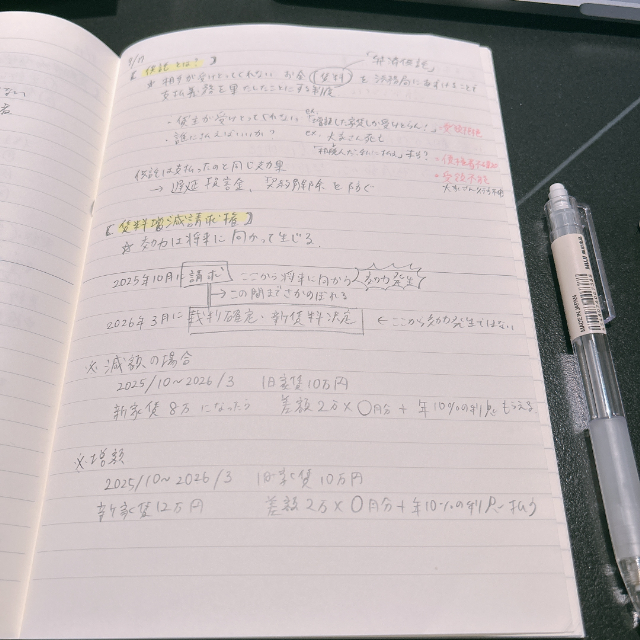 「弁済供託」
【供託とは？】
☆ 相手が受けとってくれない お金(賃料)を法務局にあずけることで
支払義務を果たしたことにする制度
・貸主が受けとってくれない ex.「増額した家賃しか受けとらん！」
・誰に払えばいいか？ ex. 大家さん死亡
供託は支払ったのと同じ効果
→ 遅延損害金、契約解除を防ぐ
【賃料増減請求権】
☆ 効力は将来に向かって生じる
2025年10月に 請求 ここから将来に向かう 効力発生
→この間までさかのぼれる
2026年3月に 裁判確定・新賃料決定 ←ここから効力発生ではない
※減額の場合
2025/10～2026/3 旧家賃10万円
新家賃8万になったら 差額2万×〇月分＋年10%の利息もらえる
※増額
2025/10～2026/3 旧家賃10万円
新家賃12万円 差額2万×〇月分＋年10%の利息払う